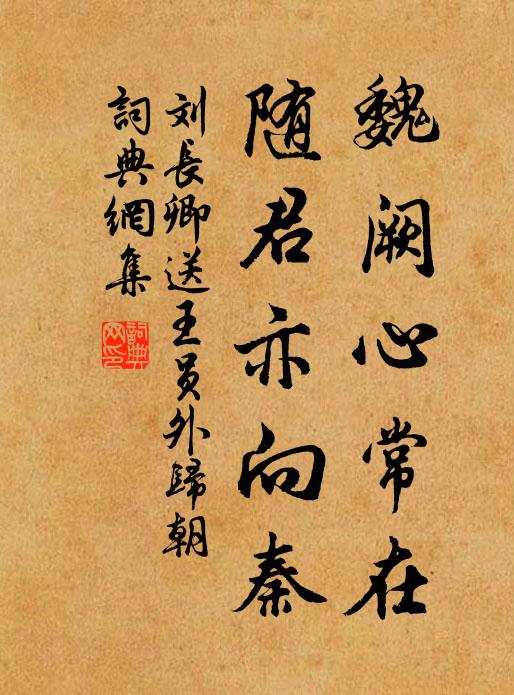 魏阙心常在
随君亦向秦
刘长卿送王员外歸朝
詞典網集
詞典网印